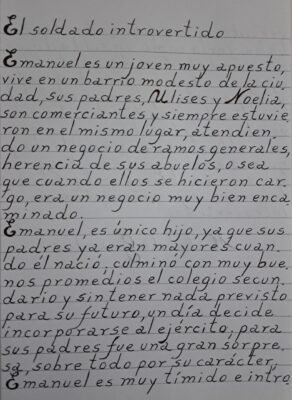 El soldado introvertido
Emanuel es un joven muy apuesto,
vive en un barrio modesto de la ciu
dad, sus padres, Ulises y Noelia,
son comerciantes y siempre estuvie
ron en el mismo lugar, atendien
do un negocio de ramos generales,
herencia de sus abuelos, o sea
que cuando ellos se hicieron car
go, era un negocio muy bien enca
minado.
Emanuel, es único hijo, ya que sus
padres ya eran mayores cuan
do él nació, culminó con muy bue
nos promedios el colegio secun
dario y sin tener nada previsto
para su futuro, un día decide
incorporarse al ejército, para
sus padres fue una gran sorpre
sa, sobre todo por su carácter,
Emanuel es muy tímido e intro